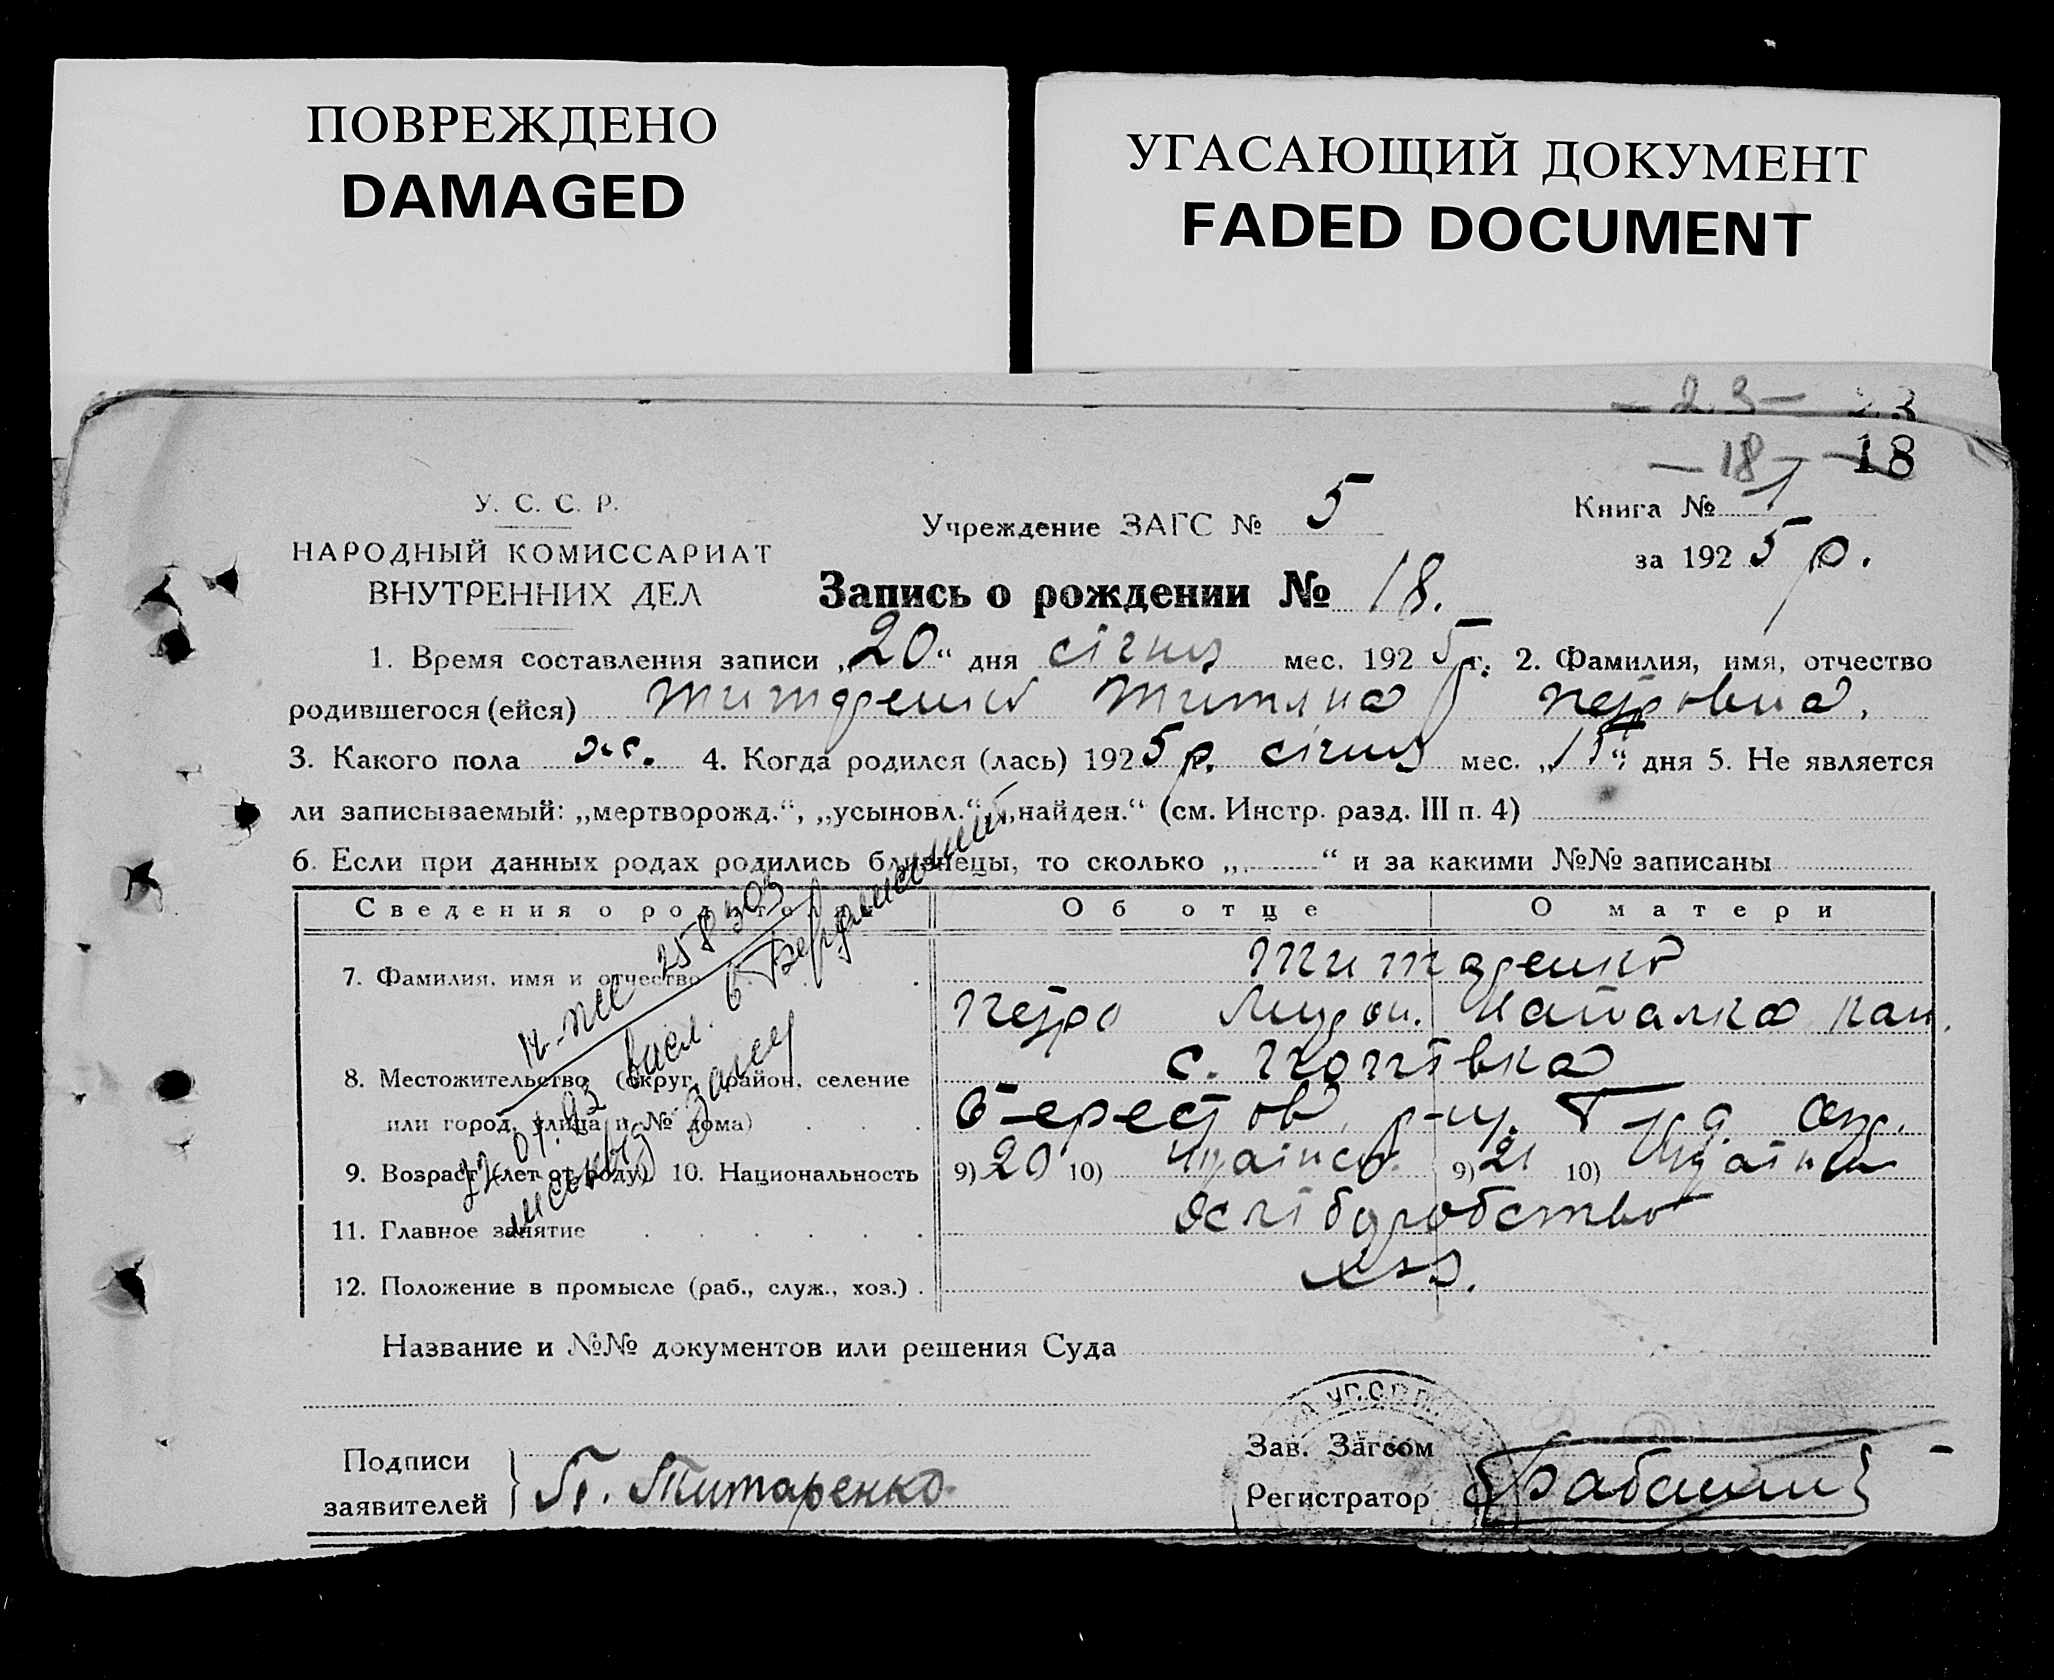 ПОВРЕЖДЕНО
DAMAGED
УГАСАЮЩИЙ ДОКУМЕНТ
FADED DOCUMENT
— 23 — 23
— 18 — 18
У. С. С. Р.
НАРОДНЫЙ КОМИССАРИАТ
ВНУТРЕННИХ ДЕЛ
Учреждение ЗАГС № 5
Книга № 1
за 1925 р.
Запись о рождении № 18.
1. Время составления записи „20“ дня січня мес. 1925 г. 2. Фамилия, имя, отчество
родившегося (ейся) Титаренко Титяна Петровна.
3. Какого пола ж. 4. Когда родился (лась) 1925 р. січня мес. „ “ дня 5. Не является
ли записываемый: „мертворожд.“, „усыновл.“, „найден.“ (см. Инстр. разд. III п. 4)
6. Если при данных родах родились близнецы, то сколько „ “ и за какими №№ записаны
Сведения о родителях Об отце О матери
7. Фамилия, имя и отчество Титаренко
Петро Мирон. Наталка Пан.
8. Местожительство (округ, район, селение с. Попівка
или город, улица и № дома) Берестов. р-ну
9. Возраст (лет от роду) 10. Национальность 9) 20 10) Українец. 9) 21 10) Українка
11. Главное занятие хліборобство
12. Положение в промысле (раб., служ., хоз.) хоз.
258303
Название и №№ документов или решения Суда
Подписи
заявителей } П. Титаренко
Зав. Загсом
Регистратор